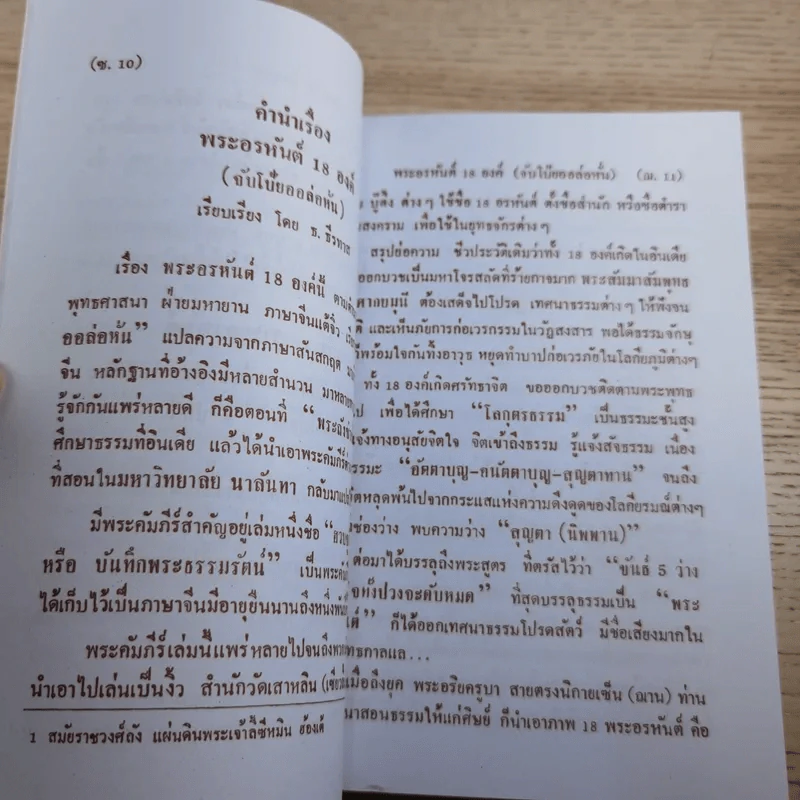 (ช. 10)
คำนำเรื่อง
พระอรหันต์ 18 องค์
(จับโป๊ยออล่อหั่น)
เรียบเรียง โดย ธ. ธีรทาส
เรื่อง พระอรหันต์ 18 องค์นี้
พุทธศาสนา ฝ่ายมหายาน ภาษาจีนแต้จิ๋ว
ออล่อหั่น” แปลความจากภาษาสันสกฤต
จีน หลักฐานที่อ้างอิงมีหลายสำนวน
รู้จักกันแพร่หลายดี ก็คือตอนที่
ศึกษาธรรมที่อินเดีย แล้วได้นำเอาพระคัมภีร์
ที่สอนในมหาวิทยาลัย นาลันทา
มีพระคัมภีร์สำคัญอยู่เล่มหนึ่งชื่อ
หรือ บันทึกพระธรรมรัตน์” เป็น
ได้เก็บไว้เป็นภาษาจีนมีอายุยืนนานถึง
พระคัมภีร์เล่มนี้แพร่หลายไปจนถึง
นำเอาไปเล่นเป็นงิ้ว สำนักวัดเสาหลิน
1 สมัยราชวงศ์ถัง แผ่นดินพระเจ้าลี้ซีหมิน ฮ้องเต้
พระอรหันต์ 18 องค์ (จับโป๊ยออล่อหั่น) (ฌ. 11)
บู๊ตึ๊ง ต่างๆ ใช้ชื่อ 18 อรหันต์ ตั้งชื่อสำนัก หรือชื่อตำรา
สงคราม เพื่อใช้ในยุทธจักรต่างๆ
สรุปย่อความ ชีวประวัติเดิมว่าทั้ง 18 องค์เกิดในอินเดีย
ออกบวชเป็นมหาโจรสลัดที่ร้ายกาจมาก พระสัมมาสัมพุทธ
ต้องเสด็จไปโปรด เทศนาธรรมต่างๆ ให้ฟังจน
และเห็นภัยการก่อเวรกรรมในวัฏสงสาร พอได้ธรรมจักษุ
พร้อมใจกันทิ้งอาวุธ หยุดทำบาปก่อเวรภัยในโลกียภูมิต่างๆ
ทั้ง 18 องค์เกิดศรัทธาจิต ขอออกบวชติดตามพระพุทธ
เพื่อได้ศึกษา “โลกุตรธรรม” เป็นธรรมะชั้นสูง
ทางอนุสัยจิตใจ จิตเข้าถึงธรรม รู้แจ้งสัจธรรม เนื่อง
“อัตตาบุญ-อนัตตาบุญ-สุญตาทาน” จนถึง
หลุดพ้นไปจากกระแสแห่งความดึงดูดของโลกียรมณ์ต่างๆ
ช่องว่าง พบความว่าง “สุญตา (นิพพาน)”
ต่อมาได้บรรลุถึงพระสูตร ที่ตรัสไว้ว่า “ขันธ์ 5 ว่าง
ทั้งปวงจะดับหมด” ที่สุดบรรลุธรรมเป็น “พระ
ก็ได้ออกเทศนาธรรมโปรดสัตว์ มีชื่อเสียงมากใน
เมื่อถึงยุค พระอริยครูบา สายตรงนิกายเซ็น (ฌาน) ท่าน
สอนธรรมให้แก่ศิษย์ ก็นำเอาภาพ 18 พระอรหันต์ คือ